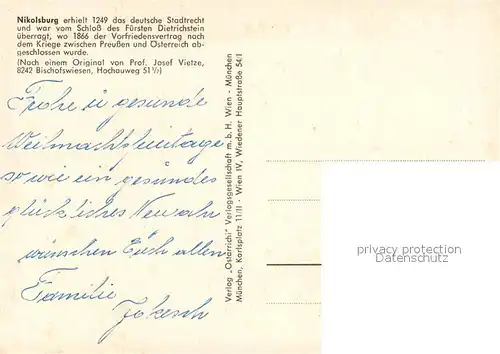 Nikolsburg erhielt 1249 das deutsche Stadtrecht
und war vom Schloß des Fürsten Dietrichstein
überragt, wo 1866 der Vorfriedensvertrag nach
dem Kriege zwischen Preußen und Österreich ab-
geschlossen wurde.
(Nach einem Original von Prof. Josef Vietze,
8242 Bischofswiesen, Hochauweg 51¹/₇)
Frohe u gesunde
Weihnachtsfeiertage
sowie ein gesundes
glückliches Neujahr
wünschen Euch allen
Familie
Jokesch
Verlag „Ostarrichi" Verlagsgesellschaft m. b. H. Wien - München
München, Karlsplatz 11/II - Wien IV, Wiedener Hauptstraße 54/I
privacy protection
Datenschutz